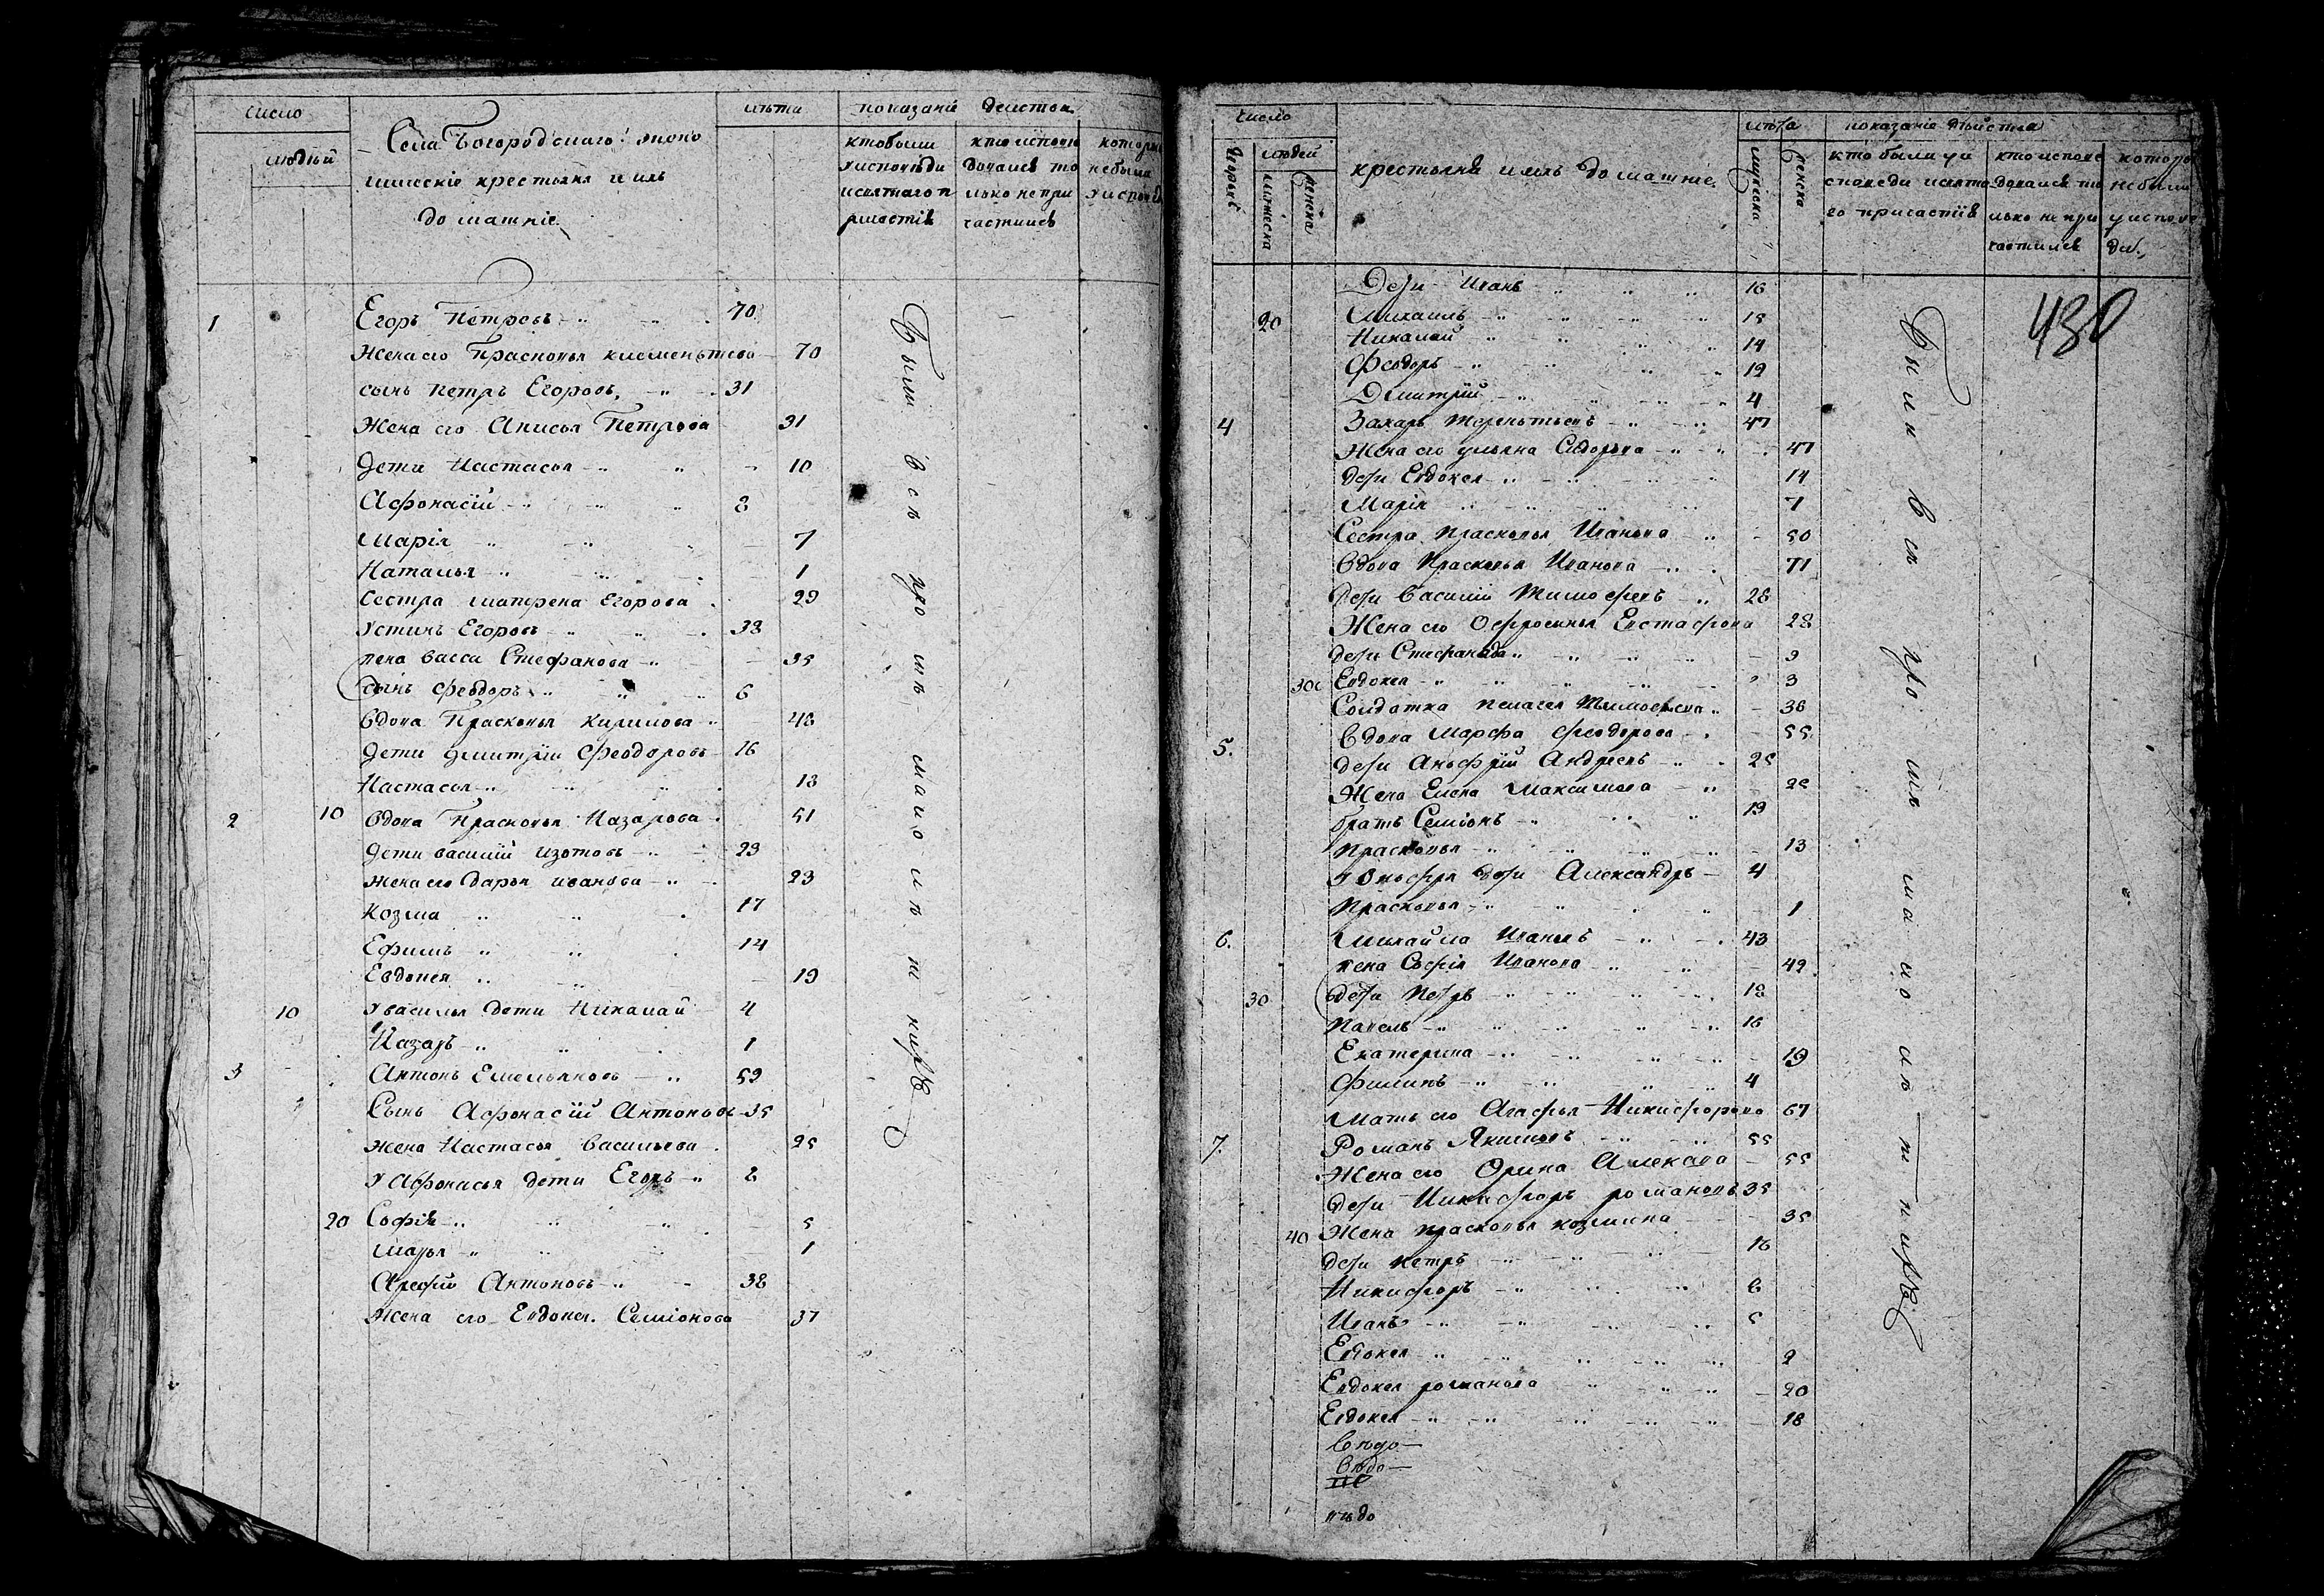 число
людьй
Села Богородскаго эконо
мическiе крестьяня и ихъ
домашнiе.
лѣта
показанiе действа
кто были
у исповѣди
и святаго п
ричастiя
кто испове
довался то
лько не при
частился
которые
не были
у исповѣди
1
Егоръ Петровъ 70
Жена его Прасковья Клементьева 70
сынъ Петръ Егоровъ 31
Жена его Анисья Петрова 31
дети Настасья 10
Афонасiй 8
Марiя 7
Наталья 1
Сестра матрена Егорова 29
Устинъ Егоровъ 38
жена васса Стефанова 35
сынъ Феодоръ 6
вдова Прасковья кирилова 48
дети дмитрiй Феодоровъ 16
Настасья 13
2 10 вдова Прасковья Назарова 51
дети василiй изотовъ 23
жена его дарья иванова 23
козма 17
Ефимъ 14
Евдокея 19
10 у василья дети Николай 4
Назаръ 1
3 Антонъ Емельяновъ 59
Сынъ Афонасiй Антоновъ 35
жена Настасья васильева 25
у Афонасья дети Егоръ 2
20 Софiя 5
марья 1
Арефiй Антоновъ 38
Жена его Евдокея Семiонова 37
Были всѣ про мѣ мало лѣ т нихъ
число
дворовъ
людей
мужеска
женска
крестьяня и ихъ домашнiе.
лѣта
мужеска
женска
показанiе дѣйства
кто были у и
споведи и свято
го причастiя
кто испове
довался то
лько не при
частился
которы
не были
у испове
ди.
430
Дети Иванъ 16
20 Михаилъ 15
Николай 14
Феодоръ 12
Дмитрiй 4
4 Захаръ Терентьевъ 47
Жена его ульяна Сидорова 47
дети Евдокея 14
Марiя 7
Сестра Прасковья Иванова 50
вдова Прасковья Иванова 71
дети василiй Тимофеевъ 28
Жена его Офросинья Евстафьева 28
дети Стефанида 9
30 Евдокея 3
Солдатка пелагея Тимофеева 36
5. вдова Марфа Феодорова 55
дети Анофрiй Андреевъ 25
Жена Елена Максимова 25
братъ Семiонъ 19
Прасковья 13
у Онофрiя дети Александръ 4
Прасковья 1
6. Михайла Ивановъ 43
жена Софiя Иванова 42
30 дети Петръ 18
Павелъ 16
Екатерина 19
Филипъ 4
Мать его Агафья Никифорова 67
7. Романъ Якимовъ 55
Жена его Орина Алексева 55
дети Никифоръ романовъ 35
40 Жена прасковья козмина 35
дети петръ 16
Никифоръ 6
Иванъ 5
Евдокея 2
Евдокея романова 20
Евдокея 18
Были всѣ про мѣ мало лѣ т нихъ